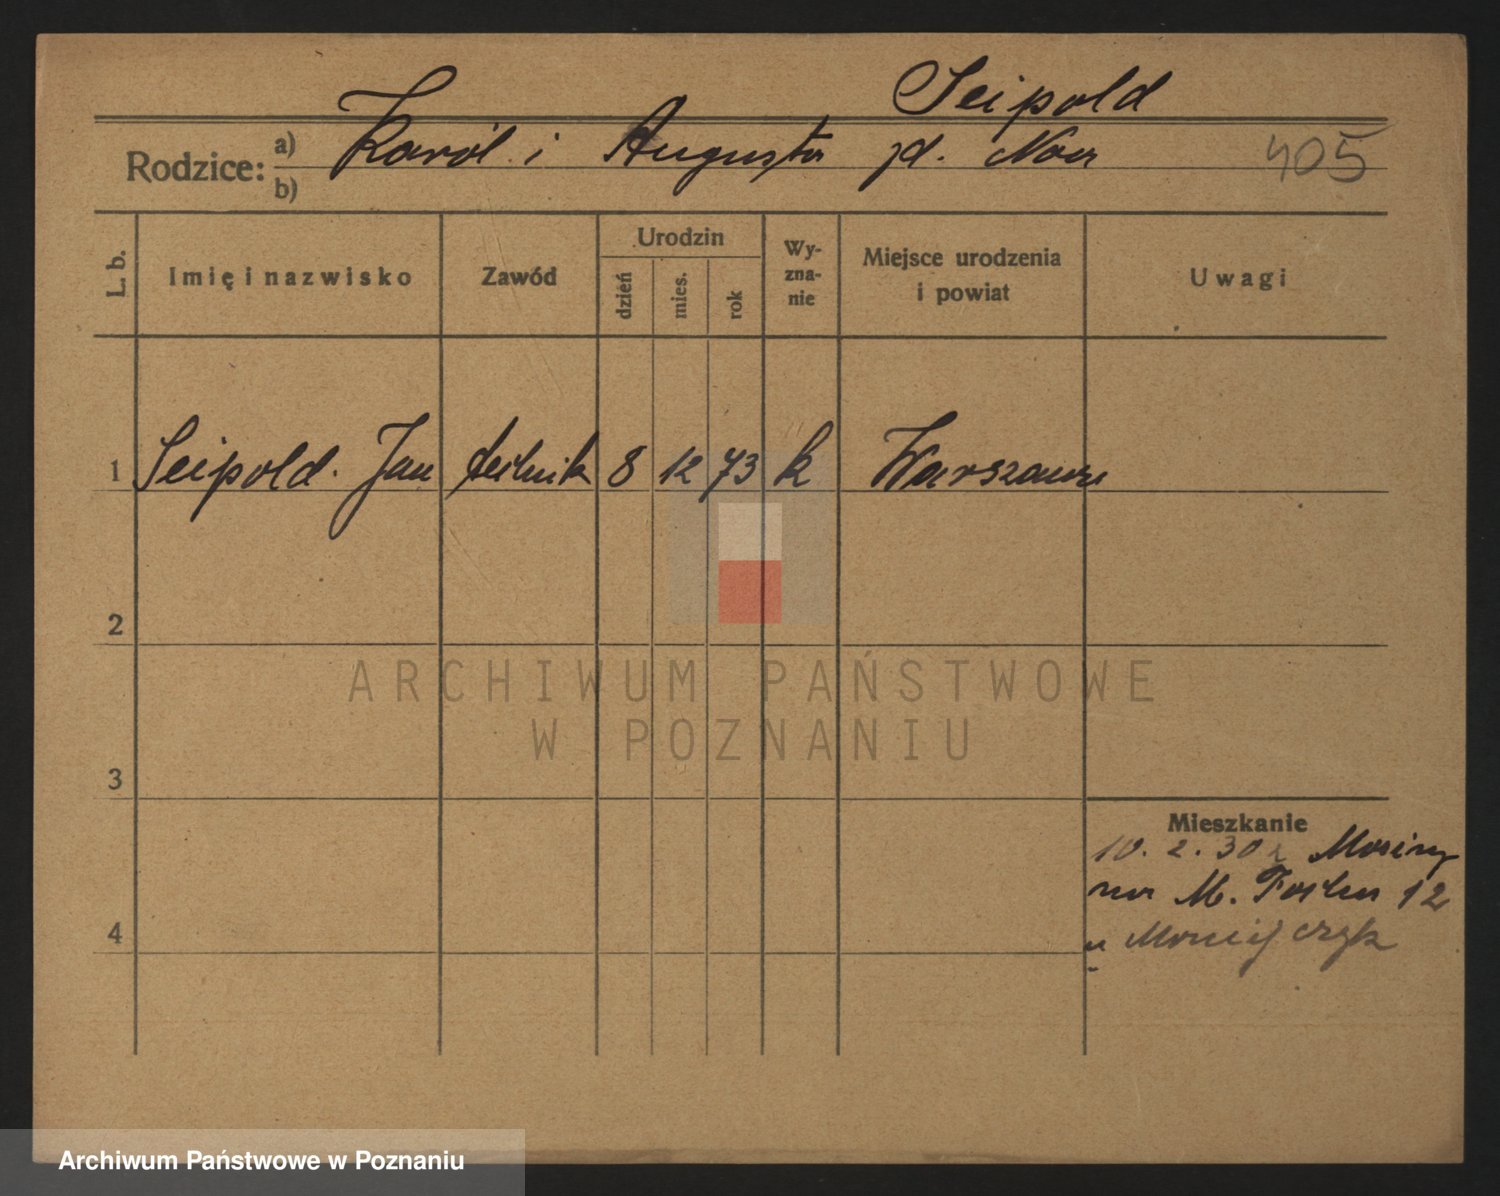 Seipold
Rodzice: a) Karól i Augusta zd. Noa
b)
405
L. b. Imię i nazwisko Zawód Urodzin dzień mies. rok Wy-zna-nie Miejsce urodzenia i powiat Uwagi
1 Seipold Jan technik 8 12 73 k Warszawa
2
ARCHIWUM PAŃSTWOWE
W POZNANIU
3
Mieszkanie
10. 2. 30 z Mosiny
na M. Focha 12
4
u
Archiwum Państwowe w Poznaniu